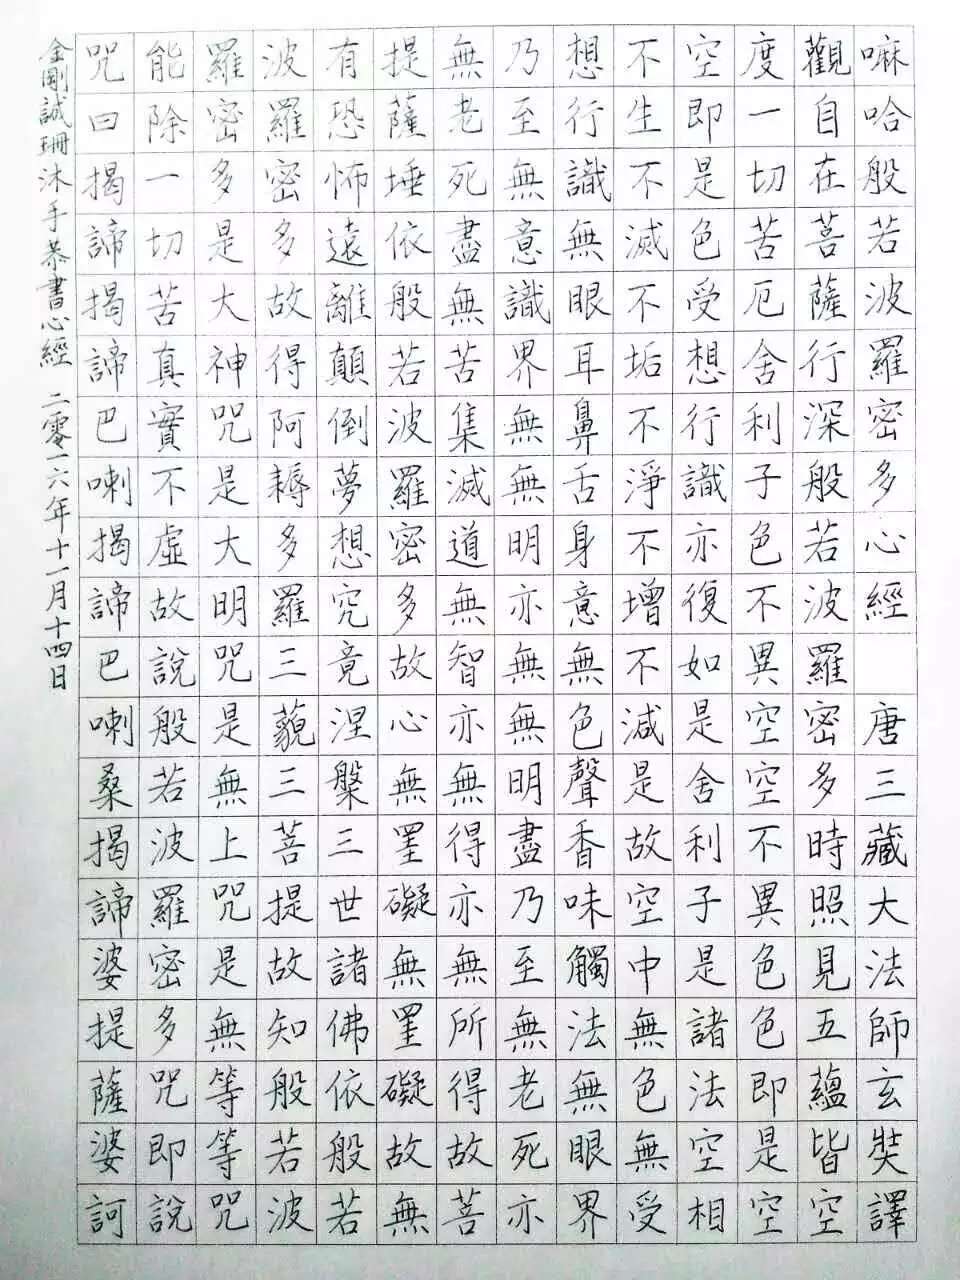 嘛哈般若波羅密多心經 唐三藏大法師玄奘譯
觀自在菩薩行深般若波羅密多時照見五蘊皆空
度一切苦厄舍利子色不異空空不異色色即是空
空即是色受想行識亦復如是舍利子是諸法空相
不生不滅不垢不淨不增不減是故空中無色無受
想行識無眼耳鼻舌身意無色聲香味觸法無眼界
乃至無意識界無無明亦無無明盡乃至無老死亦
無老死盡無苦集滅道無智亦無得亦無所得故菩
提薩埵依般若波羅密多故心無罣礙無罣礙故無
有恐怖遠離顛倒夢想究竟涅槃三世諸佛依般若
波羅密多故得阿耨多羅三藐三菩提故知般若波
羅密多是大神咒是大明咒是無上咒是無等等咒
能除一切苦真實不虛故說般若波羅密多咒即說
咒曰揭諦揭諦巴喇揭諦巴喇桑揭諦婆提薩婆訶
金剛誠珊沐手恭書心經 二零一六年十一月十四日